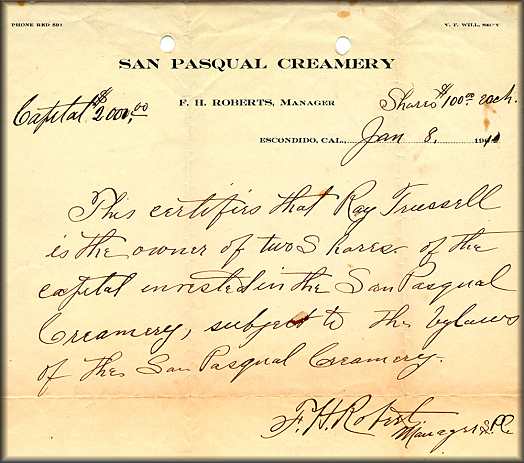 PHONE RED 591
V. F. WILL, SECY
SAN PASQUAL CREAMERY
F. H. ROBERTS, MANAGER
Capital $2000.00
Shares $100.00 each.
ESCONDIDO, CAL., Jan 8, 191
This certifies that Ray Trussell
is the owner of two Shares of the
capital invested in the San Pasqual
Creamery, subject to the bylaws
of the San Pasqual Creamery.
F. H. Robert
Manager